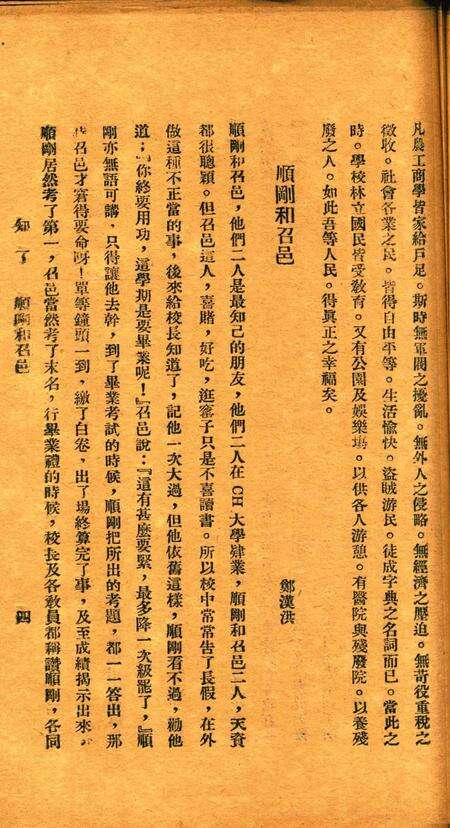 凡農工商學皆家給戶足。斯時無軍閥之擾亂。無外人之侵略。無經濟之壓迫。無苛役重稅之
徵收。社會各業之民。皆得自由平等。生活愉快。盜賊游民。徒成字典之名詞而已。當此之
時。學校林立國民皆受敎育。又有公園及娛樂塲。以供各人游憩。有醫院與殘廢院。以養殘
廢之人。如此吾等人民。得眞正之幸福矣。
順剛和召邑
鄭漢洪
順剛和召邑，他們二人是最知己的朋友，他們二人在CH大學肄業，順剛和召邑二人，天資
都很聰穎。但召邑這人，喜賭，好吃，逛窰子只是不喜讀書。所以校中常常告了長假，在外
做這種不正當的事，後來給校長知道了，記他一次大過，但他依舊這樣，順剛看不過，勸他
道：『你終要用功，這學期是要畢業呢！』召邑說：『這有甚麼要緊，最多降一次級罷了，』順
剛亦無語可講，只得讓他去幹，到了畢業考試的時候，順剛把所出的考題，都一一答出，那
召邑才窘得要命呀！單等鐘頭一到，繳了白卷，出了塲終算完了事，及至成績揭示出來，
順剛居然考了第一，召邑當然考了末名，行畢業禮的時候，校長及各敎員都稱讚順剛，各同
知了　順剛和召邑
四